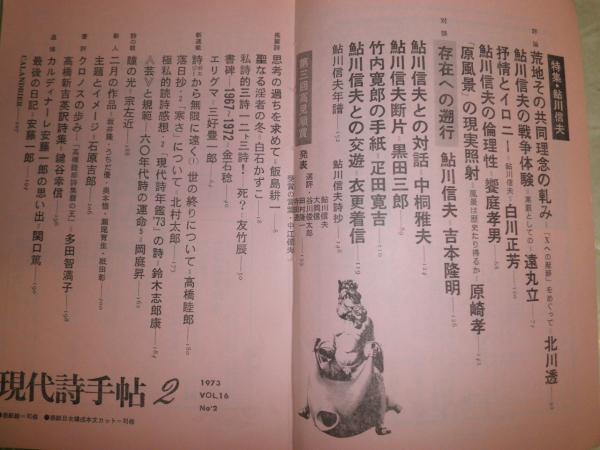 特集・鮎川信夫
評論
荒地その共同理念の軋み―「Xへの献辞」をめぐって―北川透
鮎川信夫の戦争体験―遠丸立
抒情とイロニー―鮎川信夫―白川正芳
鮎川信夫の倫理性―饗庭孝男
「原風景」の現実照射―風景は歴史たり得るか―原崎孝
対談
存在への遡行 鮎川信夫 吉本隆明
鮎川信夫との対話―中桐雅夫
鮎川信夫断片―黒田三郎
竹内寛郎の手紙―疋田寛吉
鮎川信夫との交遊―衣更着信
鮎川信夫年譜
鮎川信夫詩抄
第三回高見順賞 発表
選評
鮎川信夫
大岡信
谷川俊太郎
田村隆一
受賞の言葉・中江俊夫
長篇詩
思考の過ちを求めて―飯島耕一
聖なる淫者の冬―白石かずこ
私詩的三詩一二ト三詩! 死?―友竹辰
書碑―1967~1972―金石稔
エリグマ―三好豊一郎
新連載
詩から無限に遠く(1)世の終りについて―高橋睦郎
落日抄・2「寒さ」について―北村太郎
極私的読詩感想・2「現代詩年鑑'73」の詩―鈴木志郎康
〈芸〉と規範―六〇年代詩の運命・5―岡庭昇
詩の眼
瞳の光―宗左近
新人
二月の作品
主題とイメージ―石原吉郎
書評
クロノスの歩み―多田智満子
高橋新吉英訳詩集―鍵谷幸信
追悼
カルディナーレ安藤一郎の思い出―関口篤
最後の日記―安藤一郎
CALANDRIER
現代詩手帖 2
1973
VOL.16
No2
●表紙絵=司修 ●表紙目次構成本文カット=司修